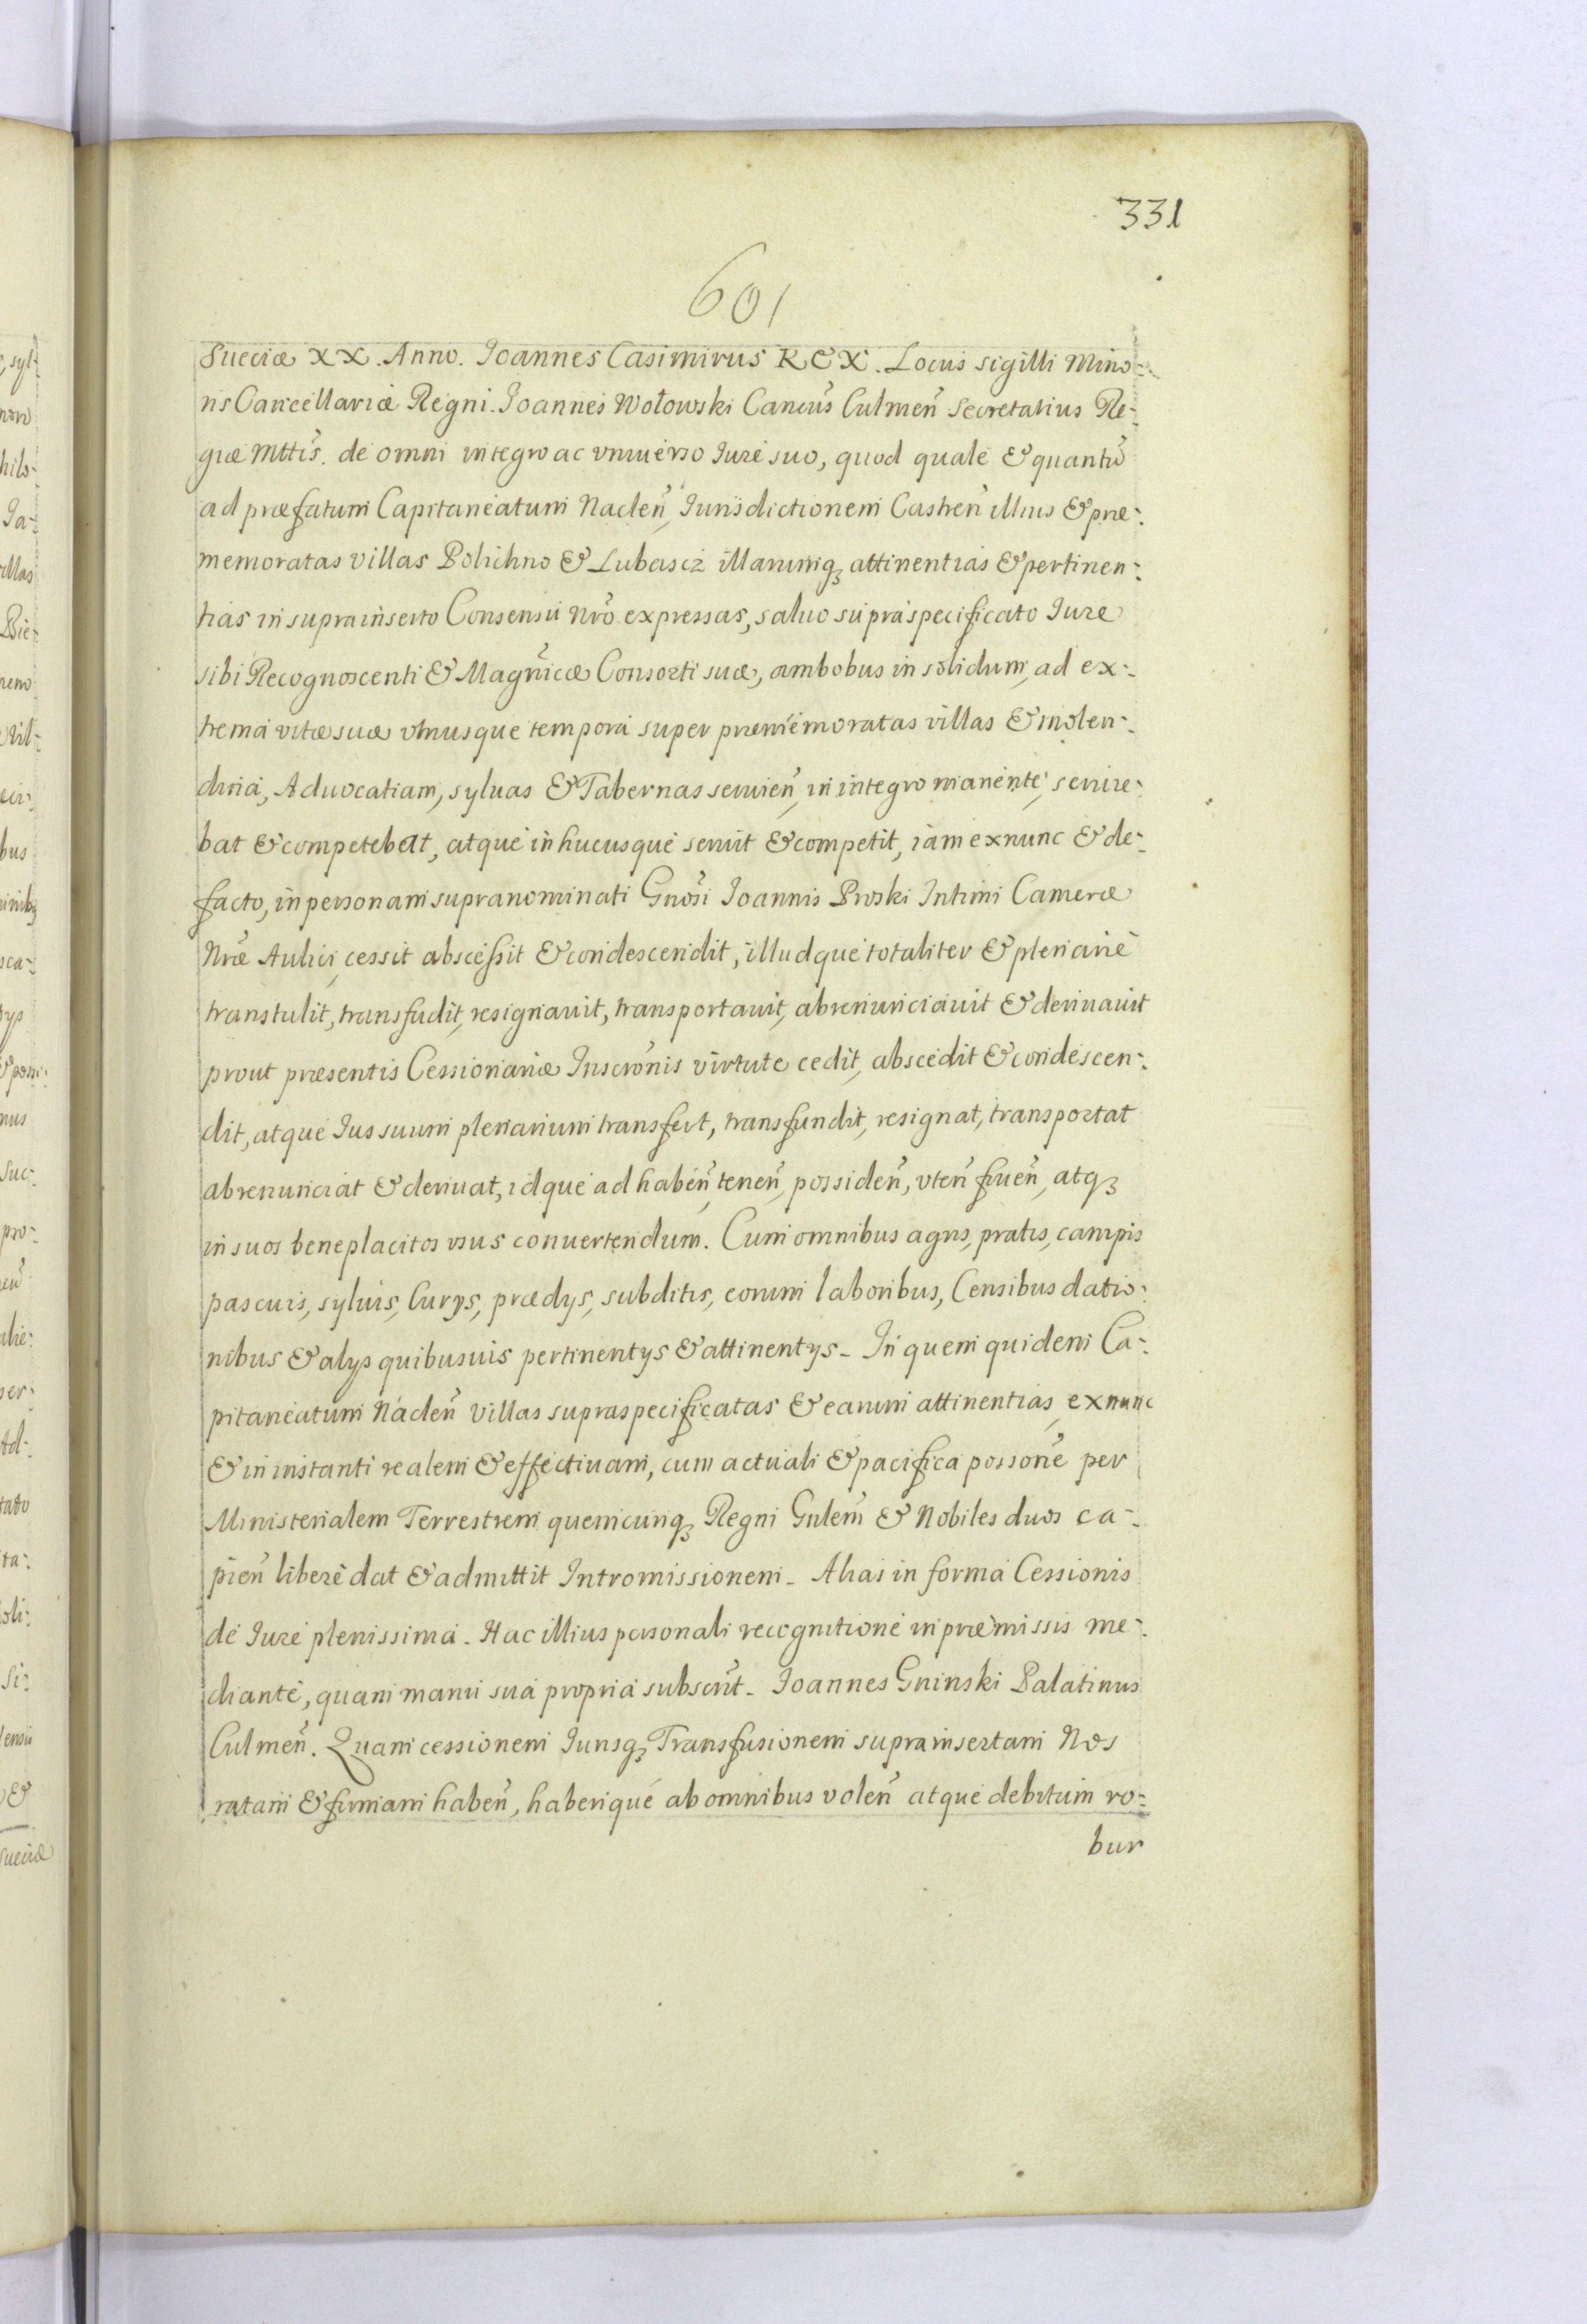 331
601
Sueciæ XX. Anno. Ioannes Casimirus REX. Locus sigilli Mino-
ris Cancellariæ Regni. Ioannes Wołowski Cancus Culmeñ Secretarius Re-
giæ Mttis. de omni integro ac vniuerso Iure suo, quod quale & quantũ
ad præfatum Capitaneatum Nacleñ, Iurisdictionem Castreñ illius & præ-
memoratas villas Polichno & Lubascz illarumq3 attinentias & pertinen-
tias in suprainserto Consensu Nrõ expressas, saluo supraspecificato Iure
sibi Recognoscenti & Magñicæ Consorti suæ, ambobus in solidum, ad ex-
trema vitæ suæ vtriusque tempora super præmemoratas villas & molen-
dina, Aduocatiam, syluas & Tabernas seruieñ, in integro manente, seruie-
bat & competebat, atque in hucusque seruit & competit, iam exnunc & de-
facto, in personam supranominati Gnõsi Ioannis Proski Intimi Cameræ
Nræ Aulici, cessit abscessit & condescendit, illudque totaliter & plenarie
transtulit, transfudit, resignauit, transportauit, abrenunciauit & deriuauit
prout præsentis Cessionariæ Inscrõnis virtute cedit, abscedit & condescen-
dit, atque Ius suum plenarium transfert, transfundit, resignat, transportat
abrenunciat & deriuat, idque ad habeñ, teneñ, possideñ, vteñ frueñ, atq3
in suos beneplacitos vsus conuertendum. Cum omnibus agris, pratis, campis
pascuis, syluis, Curys, prædys, subditis, eorum laboribus, Censibus datio-
nibus & alys quibusuis pertinentys & attinentys - In quem quidem Ca-
pitaneatum Nacleñ Villas supraspecificatas & earum attinentias, exnunc
& in instanti realem & effectiuam, cum actuali & pacifica possone per
Ministerialem Terrestrem quemcunq3 Regni Gñlem & Nobiles duos ca-
pieñ libere dat & admittit Intromissionem - Alias in forma Cessionis
de Iure plenissima - Hac illius personali recognitione in præmissis me-
diante, quam manu sua propria subscrit - Ioannes Gninski Palatinus
Culmeñ. Quam cessionem Iurisq3 Transfusionem suprainsertam Nos
ratam & firmam habeñ, haberique ab omnibus voleñ atque debitum ro-
bur